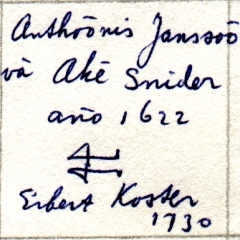 Anthoōnis Janssoō
và Akē Snider
año 1622
Eibert Koster
1730